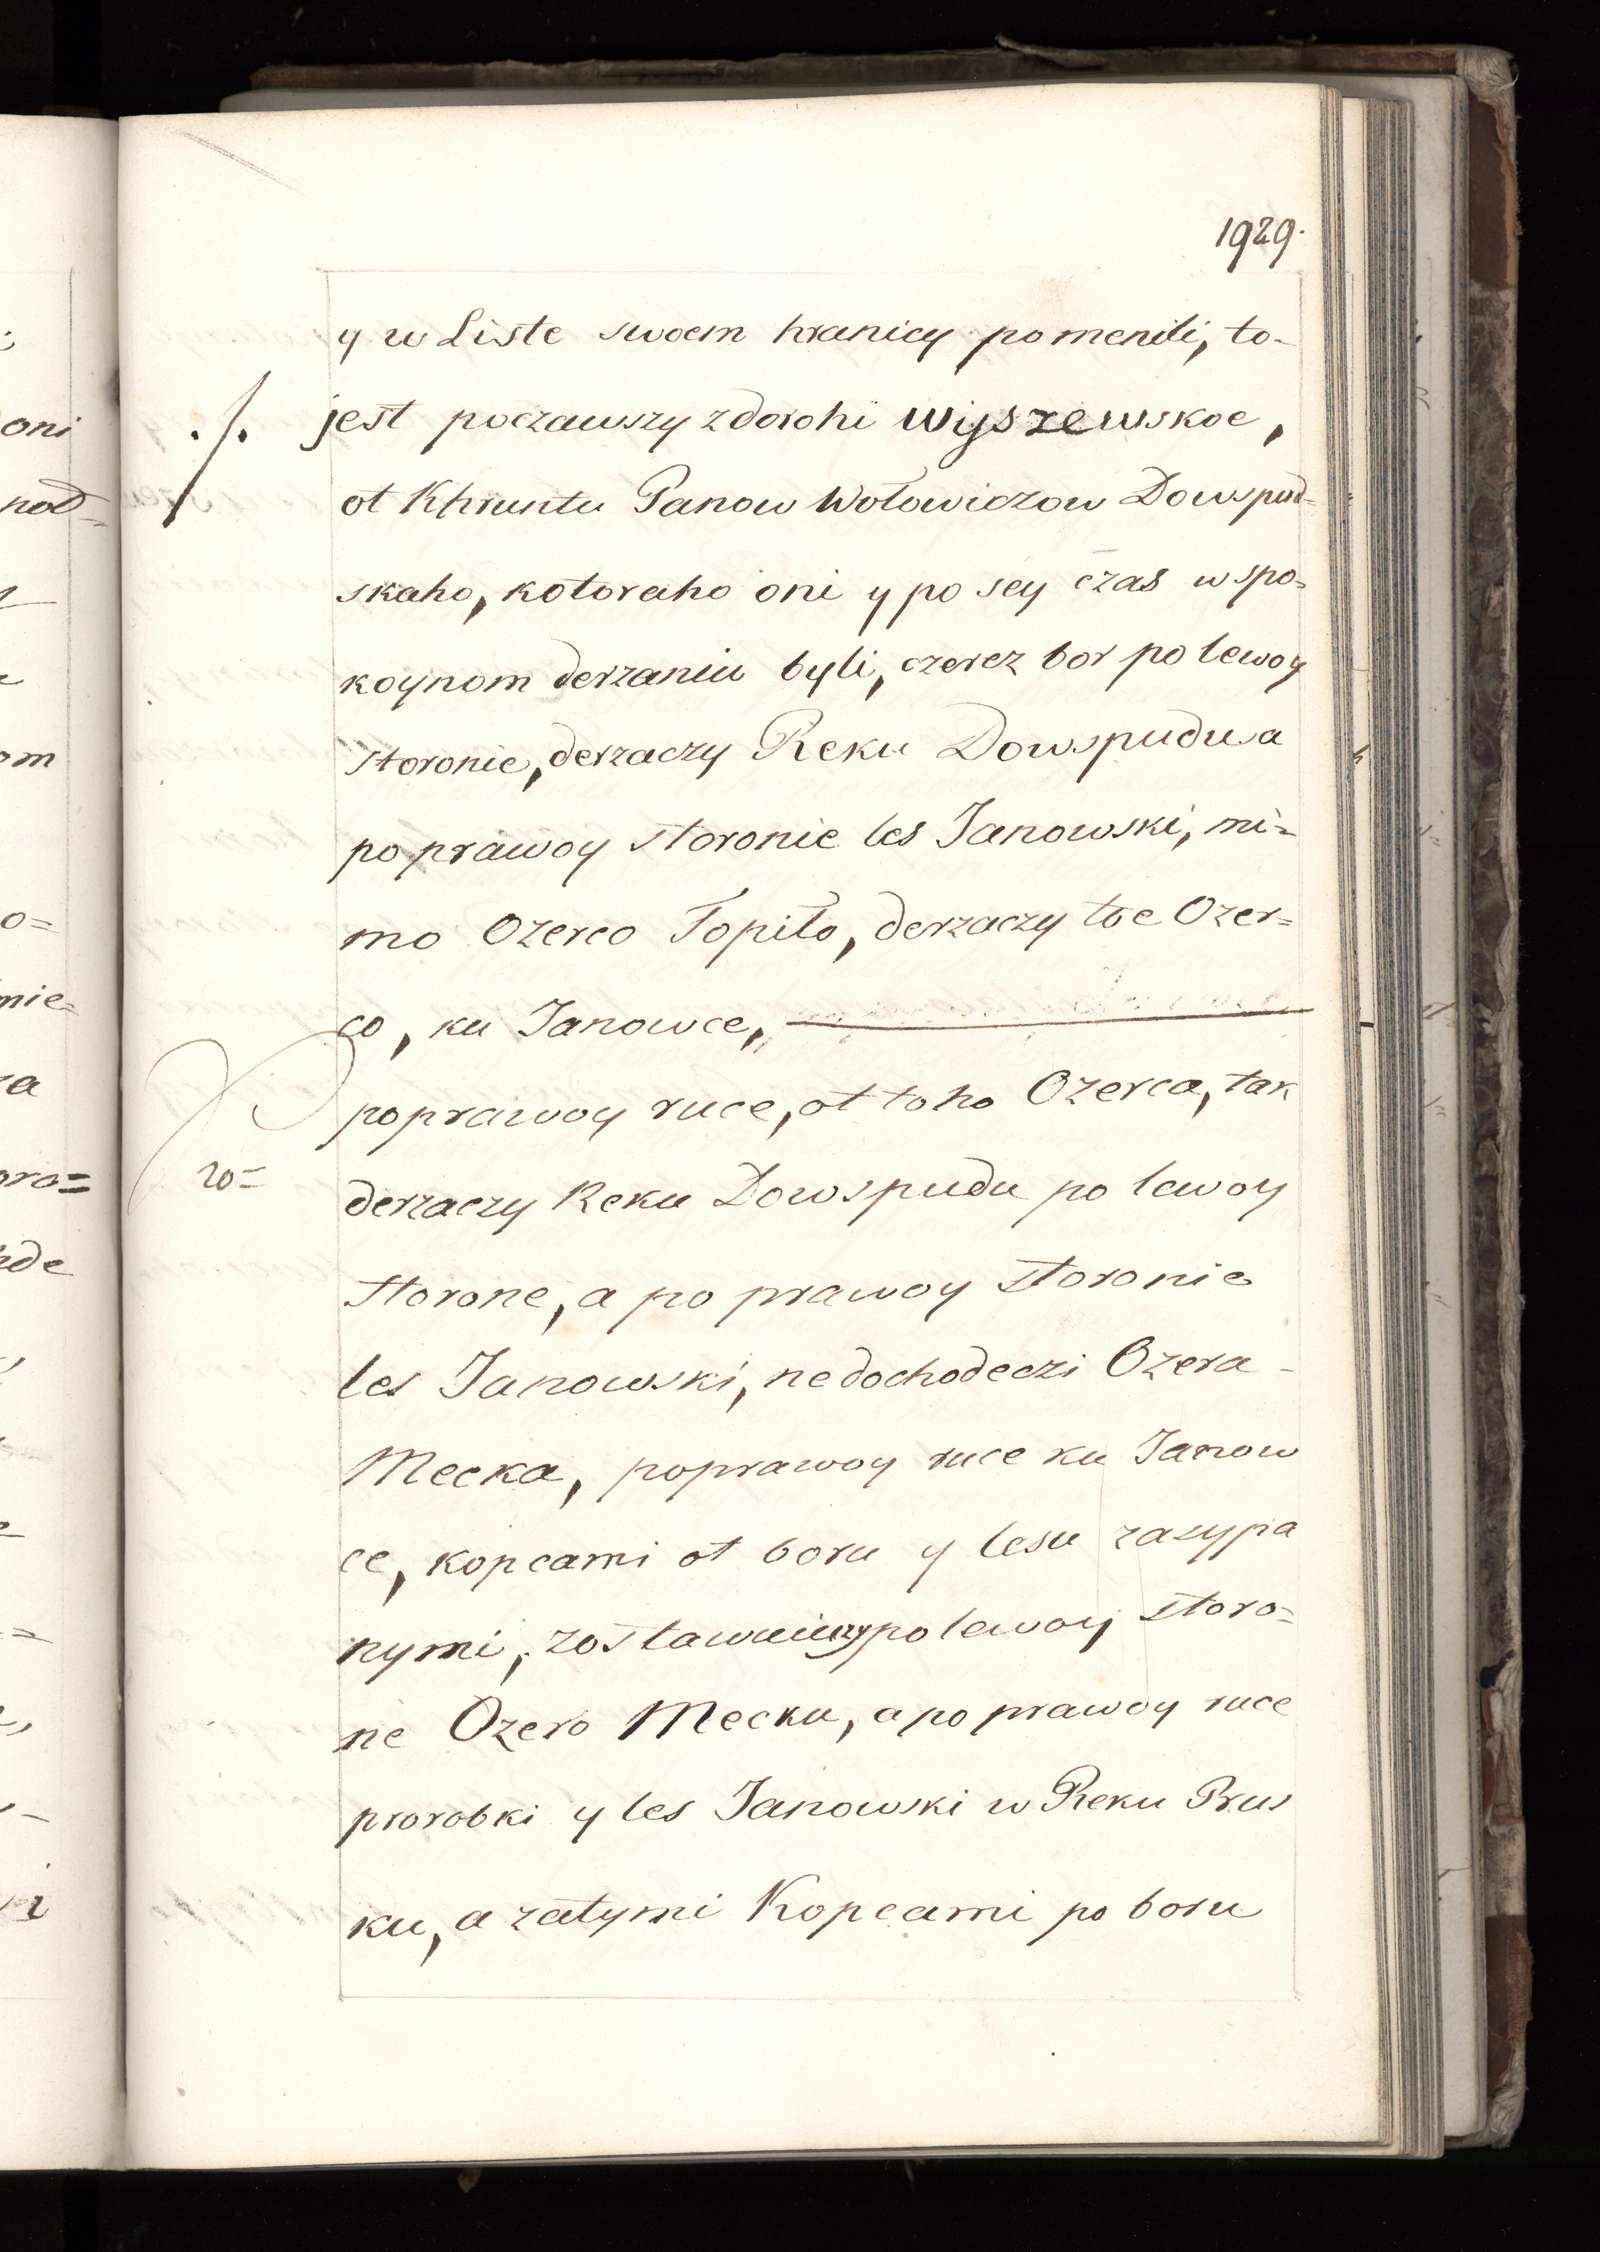 1929.
y w Liste swoem hranicy pomenili, to-
./. jest poczawszy z dorohi wyszewskoe,
ot Khruntu Panow Wołowiczow Dowspud-
skaho, kotoraho oni y po sey czas w spo-
koynom derzaniu byli, czerez bor po lewoy
storonie, derzaczy Reku Dowspudu a
po prawoy storonie les Janowski, mi-
mo Ozerco Topiło, derzaczy toe Ozer=
co, ku Janowce,
poprawoy ruce, ot toho Ozerca, tak
derzaczy Reku Dowspudu po lewoy
storone, a po prawoy storonie
les Janowski, nedochodeczi Ozera -
Mecka, poprawoy ruce ku Janow
ce, kopcami ot boru y lesu zasypa
nymi, zostawuiuczy po lewoy storo=
ne Ozero Mecku, a po prawoy ruce
prorobki y les Janowski w Reku Prus
ku, a zatymi Kopcami po boru
oni
nod=
om
o=
mie=
za
oro=